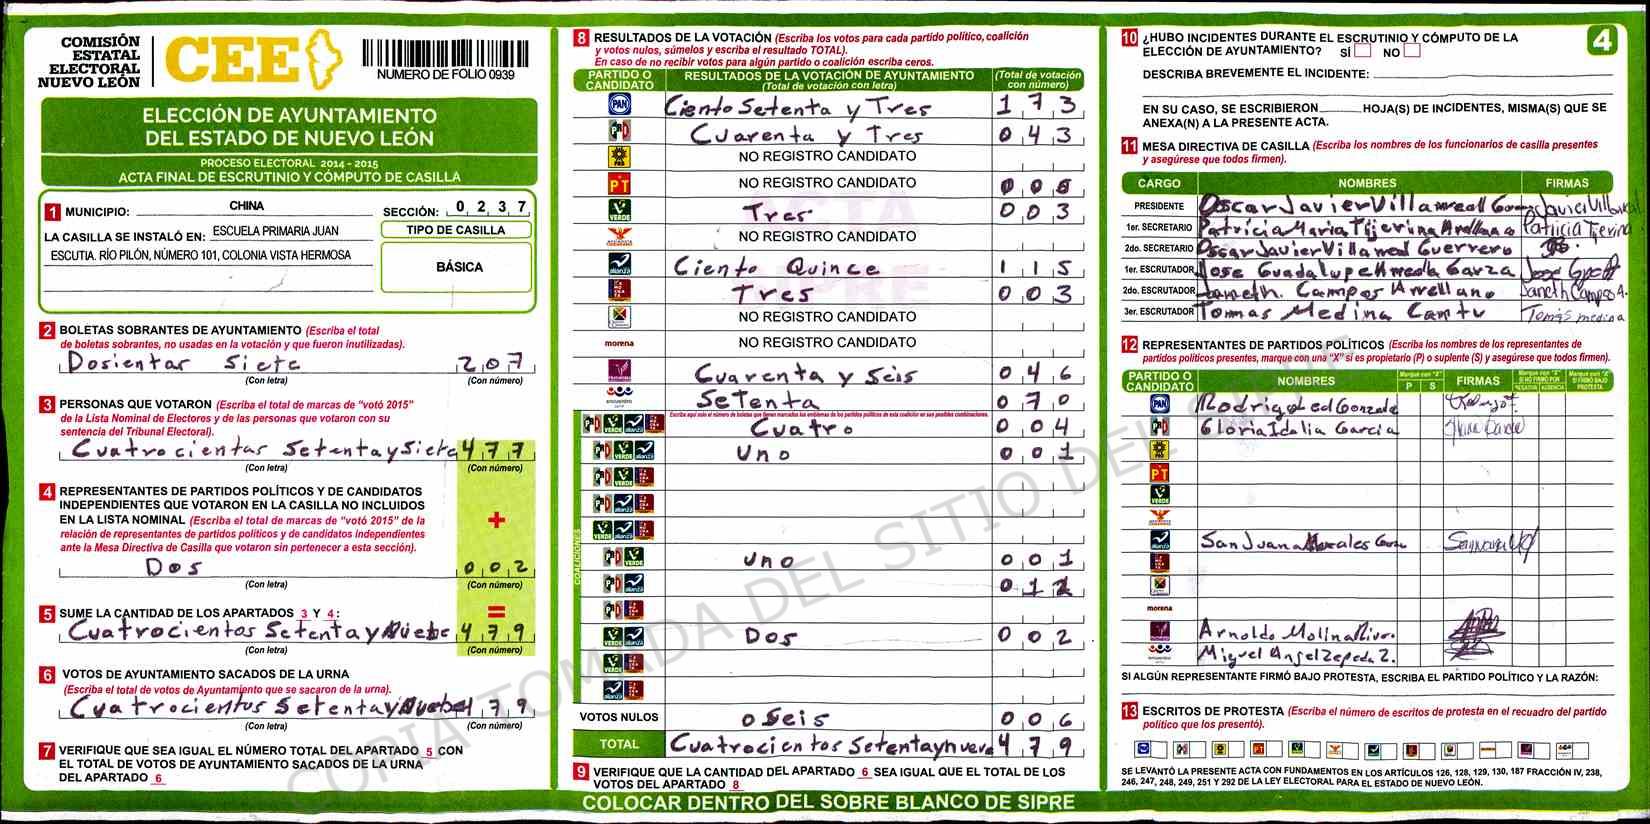 COMISIÓN
ESTATAL
ELECTORAL
NUEVO LEÓN
CEE
NUMERO DE FOLIO 0939
ELECCIÓN DE AYUNTAMIENTO
DEL ESTADO DE NUEVO LEÓN
PROCESO ELECTORAL 2014 - 2015
ACTA FINAL DE ESCRUTINIO Y CÓMPUTO DE CASILLA
1 MUNICIPIO: CHINA SECCIÓN: 0 2 3 7
LA CASILLA SE INSTALÓ EN: ESCUELA PRIMARIA JUAN
ESCUTIA. RÍO PILÓN, NÚMERO 101, COLONIA VISTA HERMOSA
TIPO DE CASILLA
BÁSICA
2 BOLETAS SOBRANTES DE AYUNTAMIENTO (Escriba el total
de boletas sobrantes, no usadas en la votación y que fueron inutilizadas).
Dosientar siete 2 0 7
(Con letra) (Con número)
3 PERSONAS QUE VOTARON (Escriba el total de marcas de "votó 2015"
de la Lista Nominal de Electores y de las personas que votaron con su
sentencia del Tribunal Electoral).
Cuatrocientas Setenta y Siete 4 7 7
(Con letra) (Con número)
4 REPRESENTANTES DE PARTIDOS POLÍTICOS Y DE CANDIDATOS
INDEPENDIENTES QUE VOTARON EN LA CASILLA NO INCLUIDOS
EN LA LISTA NOMINAL (Escriba el total de marcas de "votó 2015" de la
relación de representantes de partidos políticos y de candidatos independientes
ante la Mesa Directiva de Casilla que votaron sin pertenecer a esta sección).
+
Dos 0 0 2
(Con letra) (Con número)
5 SUME LA CANTIDAD DE LOS APARTADOS 3 Y 4: =
Cuatrocientos Setenta y Nuebe 4 7 9
(Con letra) (Con número)
6 VOTOS DE AYUNTAMIENTO SACADOS DE LA URNA
(Escriba el total de votos de Ayuntamiento que se sacaron de la urna).
Cuatrocientos Setenta y Nuebe 4 7 9
(Con letra) (Con número)
7 VERIFIQUE QUE SEA IGUAL EL NÚMERO TOTAL DEL APARTADO 5 CON
EL TOTAL DE VOTOS DE AYUNTAMIENTO SACADOS DE LA URNA
DEL APARTADO 6
8 RESULTADOS DE LA VOTACIÓN (Escriba los votos para cada partido político, coalición
y votos nulos, súmelos y escriba el resultado TOTAL).
En caso de no recibir votos para algún partido o coalición escriba ceros.
PARTIDO O CANDIDATO RESULTADOS DE LA VOTACIÓN DE AYUNTAMIENTO (Total de votación con letra) (Total de votación con número)
PAN Ciento Setenta y Tres 1 7 3
PRD Cuarenta y Tres 0 4 3
PRD NO REGISTRO CANDIDATO
PT NO REGISTRO CANDIDATO 0 0 0
VERDE Tres 0 0 3
NO REGISTRO CANDIDATO
alianza Ciento Quince 1 1 5
Tres 0 0 3
NO REGISTRO CANDIDATO
morena NO REGISTRO CANDIDATO
Cuarenta y Seis 0 4 6
encuentro Setenta 0 7 0
Escriba aquí solo el número de boletas que tienen marcados los emblemas de los partidos políticos de esta coalición en sus posibles combinaciones.
COALICIONES
Cuatro 0 0 4
Uno 0 0 1
Uno 0 0 1
0 1 2
Dos 0 0 2
VOTOS NULOS Seis 0 0 6
TOTAL Cuatrocientos Setenta y nueve 4 7 9
9 VERIFIQUE QUE LA CANTIDAD DEL APARTADO 6 SEA IGUAL QUE EL TOTAL DE LOS
VOTOS DEL APARTADO 8
COLOCAR DENTRO DEL SOBRE BLANCO DE SIPRE
10 ¿HUBO INCIDENTES DURANTE EL ESCRUTINIO Y CÓMPUTO DE LA
ELECCIÓN DE AYUNTAMIENTO? SÍ NO
4
DESCRIBA BREVEMENTE EL INCIDENTE:
EN SU CASO, SE ESCRIBIERON HOJA(S) DE INCIDENTES, MISMA(S) QUE SE
ANEXA(N) A LA PRESENTE ACTA.
11 MESA DIRECTIVA DE CASILLA (Escriba los nombres de los funcionarios de casilla presentes
y asegúrese que todos firmen).
CARGO NOMBRES FIRMAS
PRESIDENTE Oscar Javier Villarreal
1er. SECRETARIO Patricia Maria Tijerina Arellano Patricia Tijerina
2do. SECRETARIO Oscar Javier Villarreal Guerrero
1er. ESCRUTADOR Jose Guadalupe Almeda Garza
2do. ESCRUTADOR Janeth. Campos Arrellano Janeth Campos A.
3er. ESCRUTADOR Tomas Medina Cantu Tomás medina
12 REPRESENTANTES DE PARTIDOS POLÍTICOS (Escriba los nombres de los representantes de
partidos políticos presentes, marque con una "X" si es propietario (P) o suplente (S) y asegúrese que todos firmen).
PARTIDO O CANDIDATO NOMBRES Marque con "X" P S FIRMAS Marque con "X" SI NO FIRMÓ POR NEGATIVA AUSENCIA Marque con "X" SI FIRMÓ BAJO PROTESTA
PAN Rodrigo
Gloria Idalia Garcia
PT
VERDE
alianza San Juana Morales
morena
Arnoldo Molina
Miguel Angel Zepeda Z.
SI ALGÚN REPRESENTANTE FIRMÓ BAJO PROTESTA, ESCRIBA EL PARTIDO POLÍTICO Y LA RAZÓN:
13 ESCRITOS DE PROTESTA (Escriba el número de escritos de protesta en el recuadro del partido
político que los presentó).
SE LEVANTÓ LA PRESENTE ACTA CON FUNDAMENTOS EN LOS ARTÍCULOS 126, 128, 129, 130, 187 FRACCIÓN IV, 238,
246, 247, 248, 249, 251 Y 292 DE LA LEY ELECTORAL PARA EL ESTADO DE NUEVO LEÓN.
COPIA TOMADA DEL SITIO DEL SIPRE